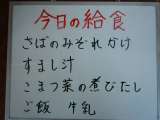 今日の給食
さばのみぞれかけ
すまし汁
こまつ菜の煮びたし
ご飯 牛乳